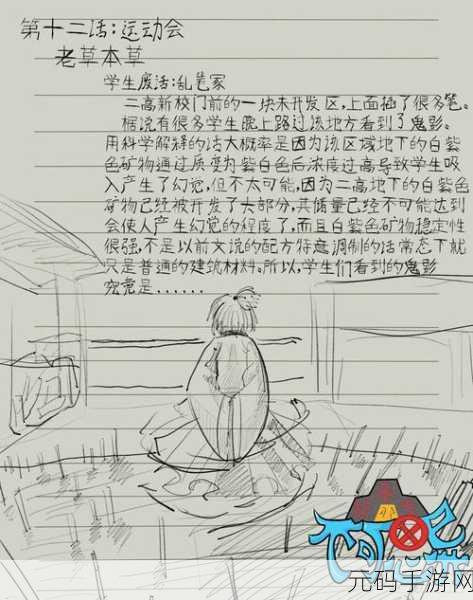 第十二话：运动会
老草本草
学生废话：乱笔冢
二高新校门前的一块未开发区，上面插了很多笔。
据说有很多学生晚上路过该地方看到了鬼影。
用科学解释的话大概率是因为该区域地下的白紫
色矿物通过质变为紫白色后浓度过高导致学生吸
入产生了幻觉，但不太可能，因为二高地下的白紫色
矿物已经被开发了大部分，其储量已经不可能达到
会使人产生幻觉的程度了，而且白紫色矿物稳定性
很强，不是以前文说的配方特意调制的话常态下就
只是普通的建筑材料。所以，学生们看到的鬼影
究竟是......
元码手游网